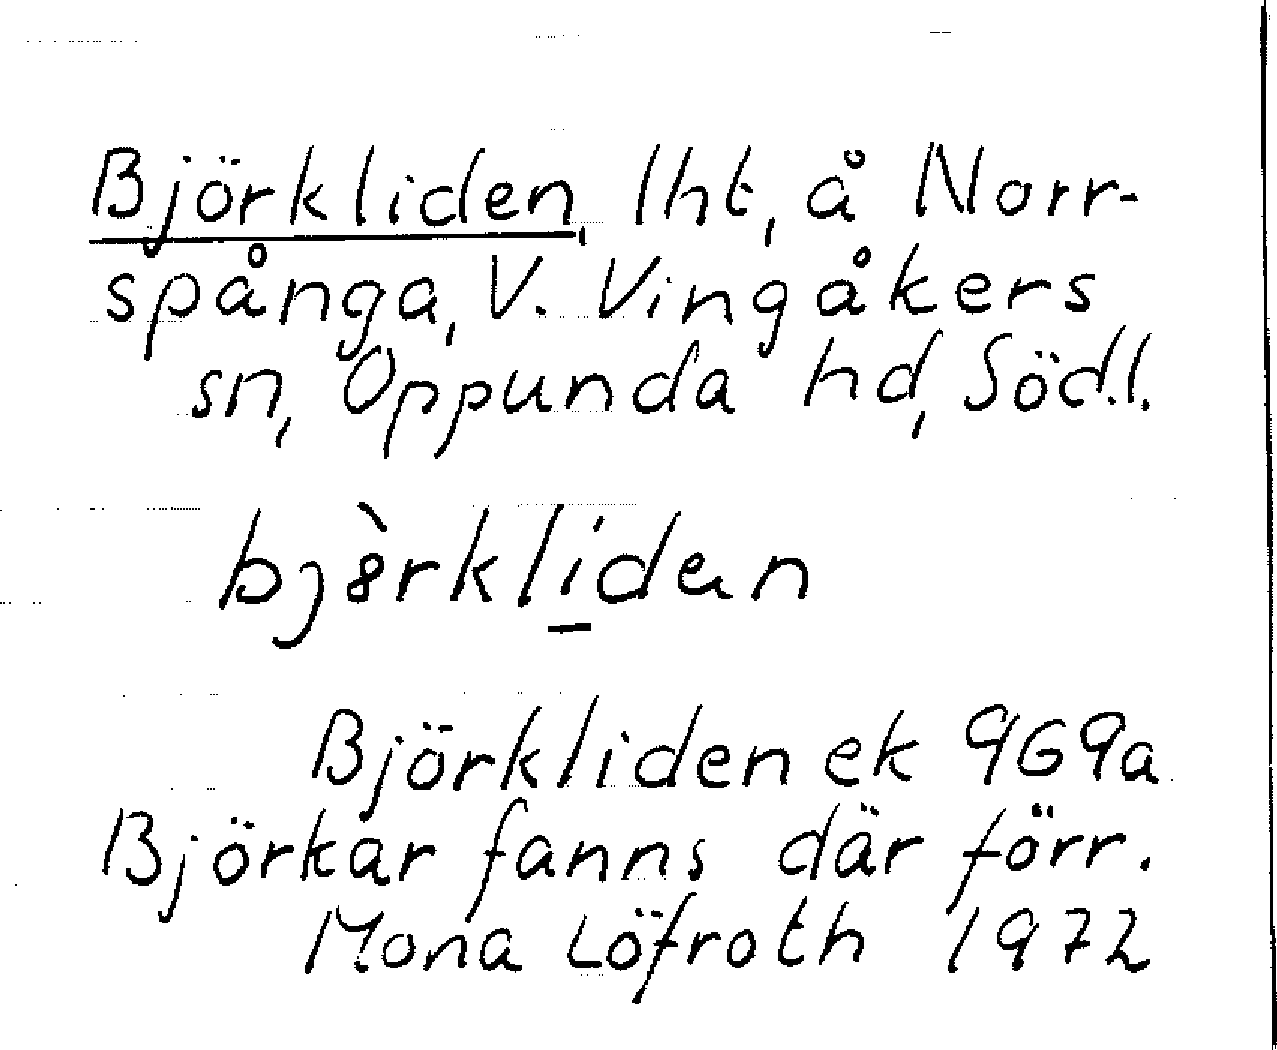 Björkliden, lht, å Norr-
spånga, V. Vingåkers
sn, Oppunda hd, Södl.
bjèrkli̲dan
Björkliden ek 9G9a
Björkar fanns där förr.
Mona Löfroth 1972